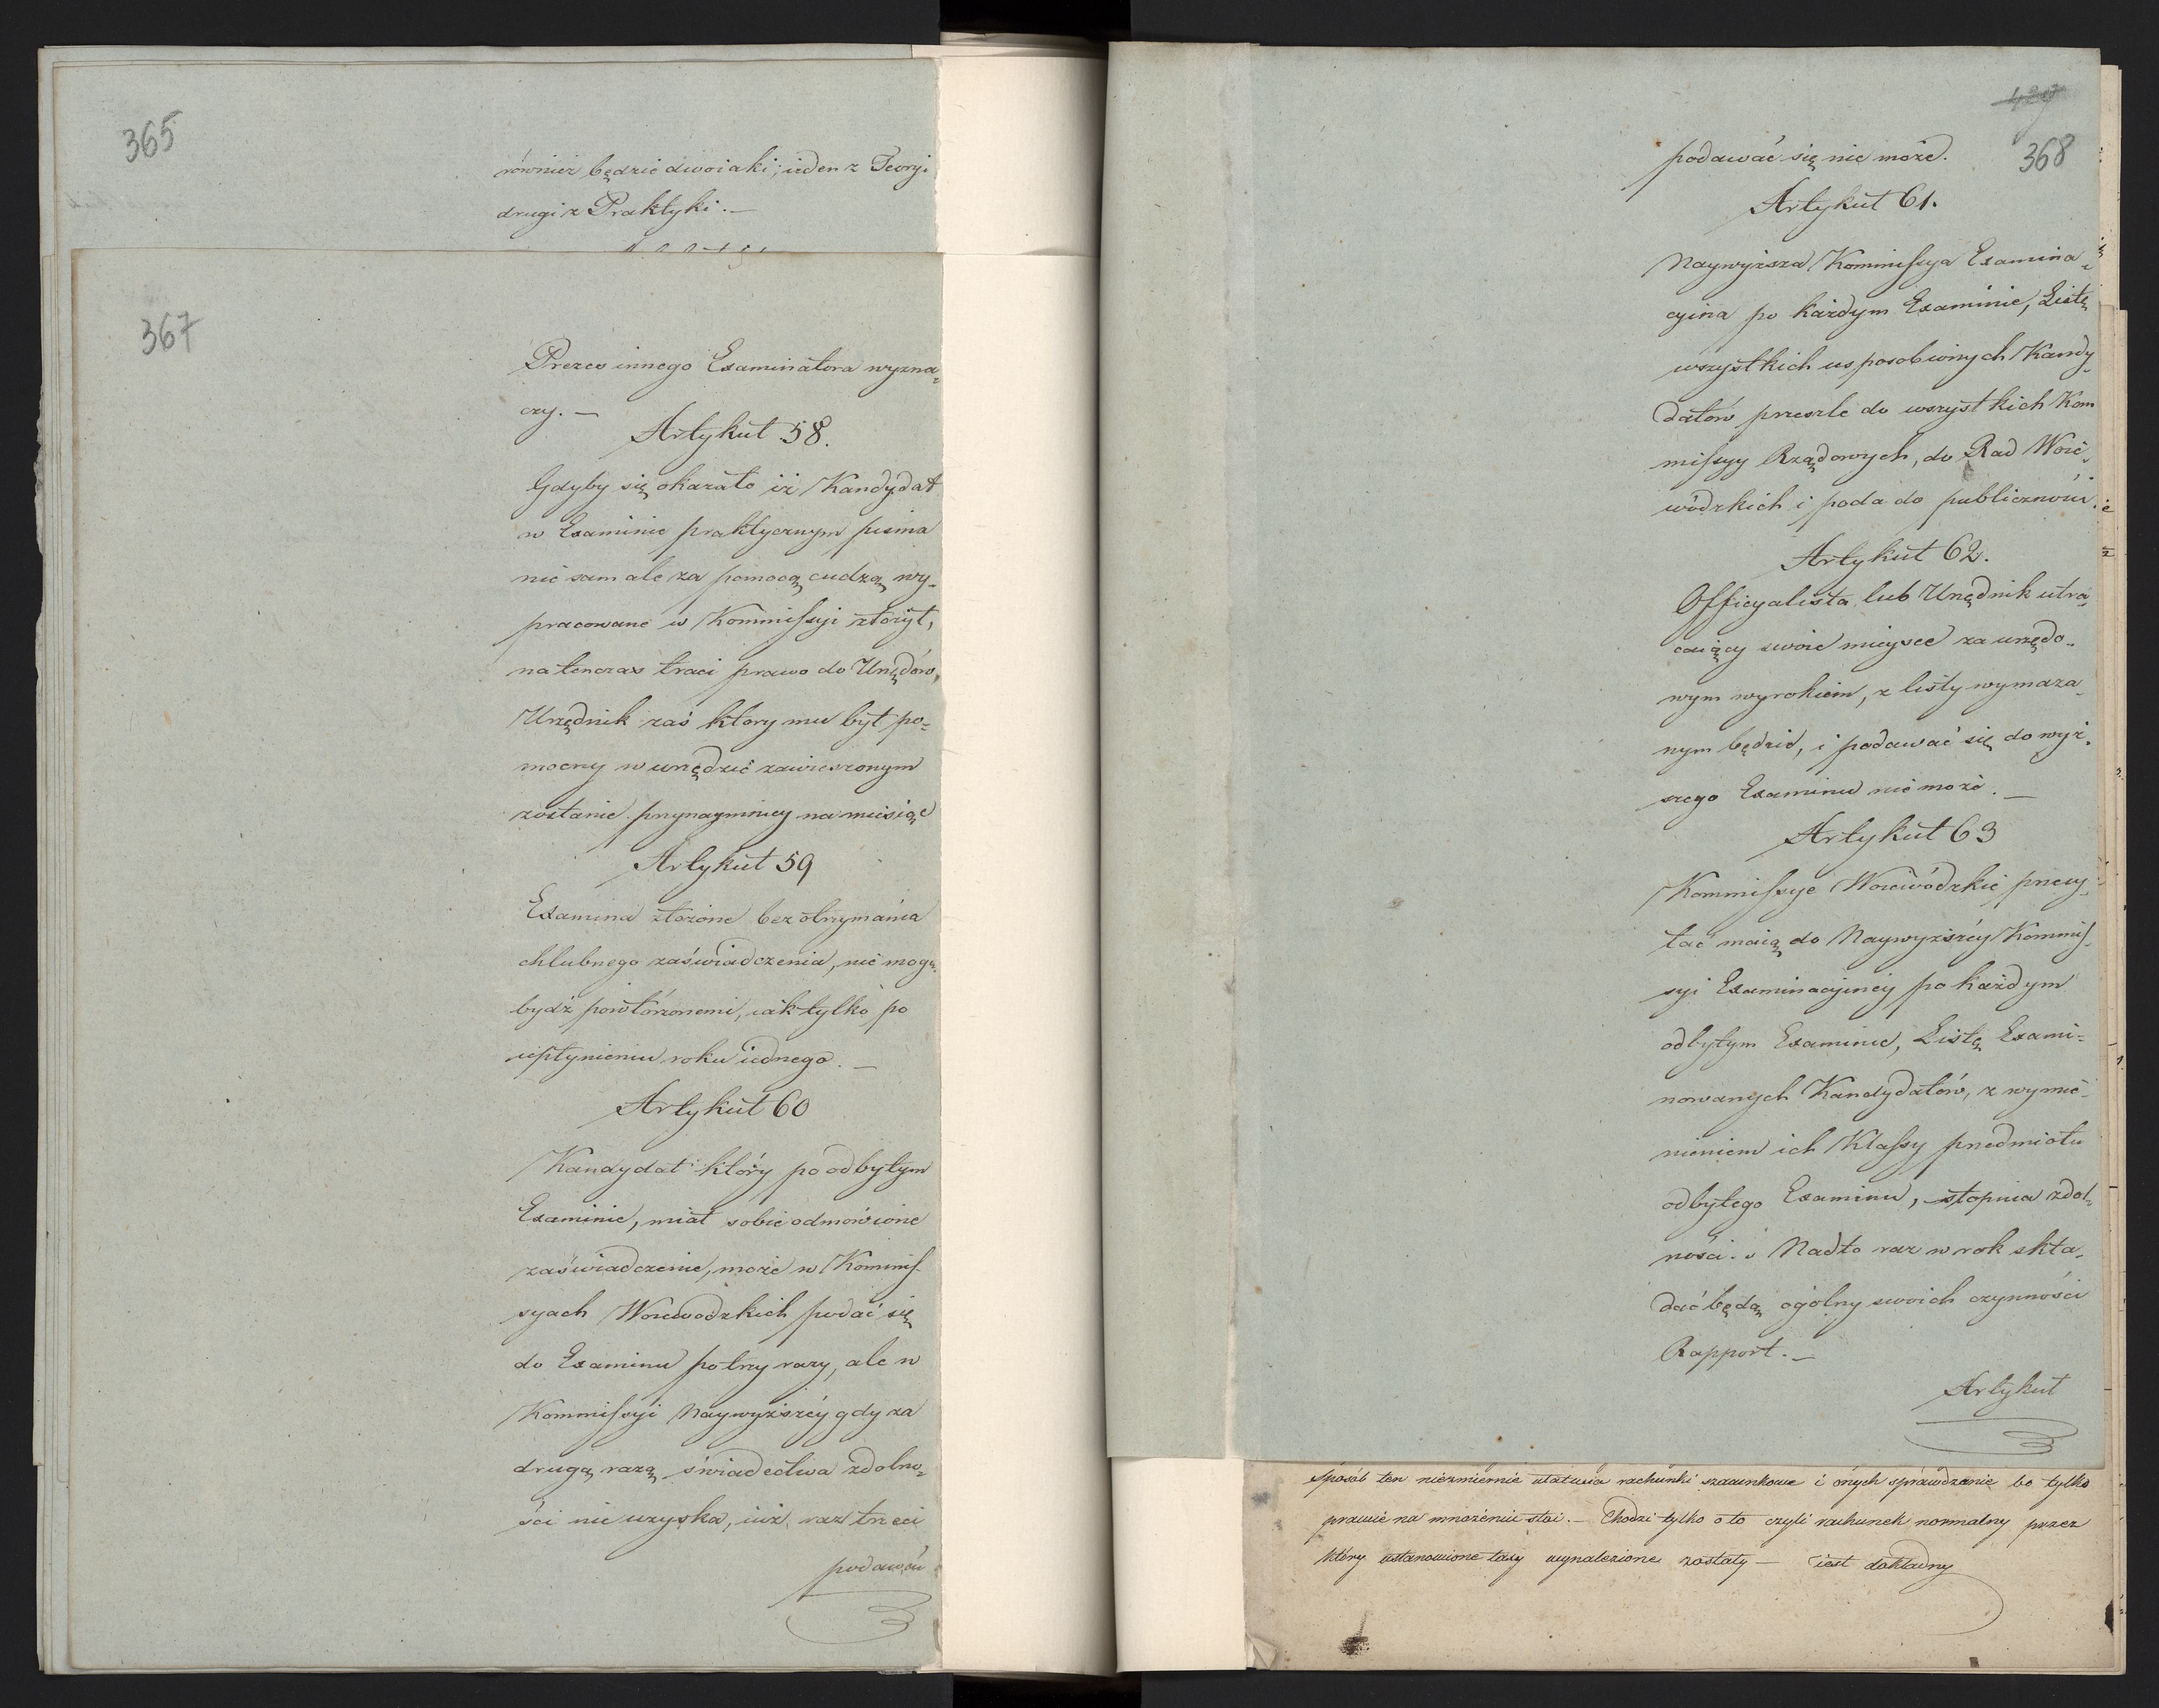 365
również będzie dwoiaki; ieden z Teoryi
drugi z Praktyki. —
367
Prezes innego Examinatora wyzna-
czy. —
Artykuł 58.
Gdyby się okazało iż Kandydat
w Examinie praktycznym pisma
nie sam ale za pomocą cudzą wy-
pracowane w Kommissyi złożył,
natenczas traci prawo do Urzędów,
Urzędnik zaś który mu był po-
mocny w urzędzie zawieszonym
zostanie przynaymniey na miesiąc
Artykuł 59
Examina złożone bez otrzymania
chlubnego zaświadczenia, nie mogą
bydź powtórzonemi, iak tylko po
upłynieniu roku iednego. —
Artykuł 60
Kandydat który po odbytym
Examinie, miał sobie odmówione
zaświadczenie, może w Kommis-
syach Woiewodzkich podać się
do Examinu po trzy razy, ale w
Kommissyi Naywyższéy gdy za
drugą razą świadectwa zdolno-
ści nie uzyska, iuż raz trzeci
podawać
429
368
podawać się nie może.
Artykuł 61.
Naywyższa Kommissya Examina-
cyina po każdym Examinie, Listę
wszystkich usposobionych Kandy-
datów prześle do wszystkich Kom
missyy Rządowych, do Rad Woie-
wódzkich i poda do publiczności.
Artykuł 62.
Officyalista lub Urzędnik utra-
caiący swoie mieysce za urzędo-
wym wyrokiem, z listy wymaza-
nym będzie, i podawać się do wyż-
szego Examinu nie może. —
Artykuł 63
Kommissye Woiewódzkie przesy-
łać maią do Naywyższéy Kommis-
syi Examinacyinéy po każdym
odbytym Examinie, Listę Exami-
nowanych Kandydatów, z wymie-
nieniem ich Klassy przedmiotu
odbytego Examinu, stopnia zdol-
ności. Nadto raz w rok skła-
dać będą ogólny swoich czynności
Rapport. —
Artykuł
Sposób ten niezmiernie ułatwia rachunki szacunkowe i onych sprawdzanie bo tylko
prawie na mnożeniu stoi. — Chodzi tylko o to czyli rachunek normalny przez
który ustanowione taxy wynalezione zostały — iest dokładny